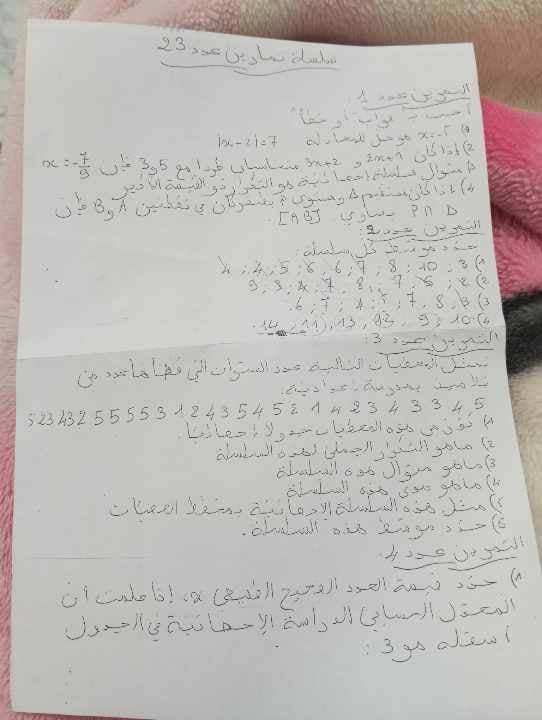 سلسلة تمارين عدد 23
التمرين عدد 1
أجب بـ "صواب أو خطأ"
1) x=-5 هو حل للمعادلة |x-2|=7
2) إذا كان 2x+1 و 3x+2 متناسبان طردا مع 5 و 3 فإن x=-7/9
3) منوال سلسلة إحصائية هو التكرار ذو القيمة الأكبر
4) إذا كان مستقيم Δ ومستوي P يشتركان في نقطتين A و B فإن
P∩Δ يساوي [AB].
التمرين عدد 2:
حدد موسط كل سلسلة:
1) 3 ; 10 ; 8 ; 7 ; 6 ; 6 ; 5 ; 4 ; 4
2) 2 ; 6 ; 7 ; 8 ; 7 ; 4 ; 3 ; 9
3) 3 ; 8 ; 7 ; 5 ; 4 ; 7 ; 6.
4) 10 ; 9 ; 13 ; 11 ; 14.
التمرين عدد 3:
تمثل المعطيات التالية عدد السنوات التي قضاها عدد من
تلاميذ بمدرسة إعدادية:
5 23 43 2 5 5 5 5 3 1 2 4 3 5 4 5 2 1 4 2 3 4 3 3 4 5
1) كون من هذه المعطيات جدولا إحصائيا.
2) ماهو التكرار الجملي لهذه السلسلة
3) ماهو منوال هذه السلسلة
4) ماهو مدى هذه السلسلة
5) مثل هذه السلسلة الإحصائية بمخطط العصيات
6) حدد موسط هذه السلسلة.
التمرين عدد 4.
1) حدد قيمة العدد الصحيح الطبيعي x، إذا علمت أن
المعدل الحسابي للدراسة الإحصائية في الجدول
أسفله هو 3: